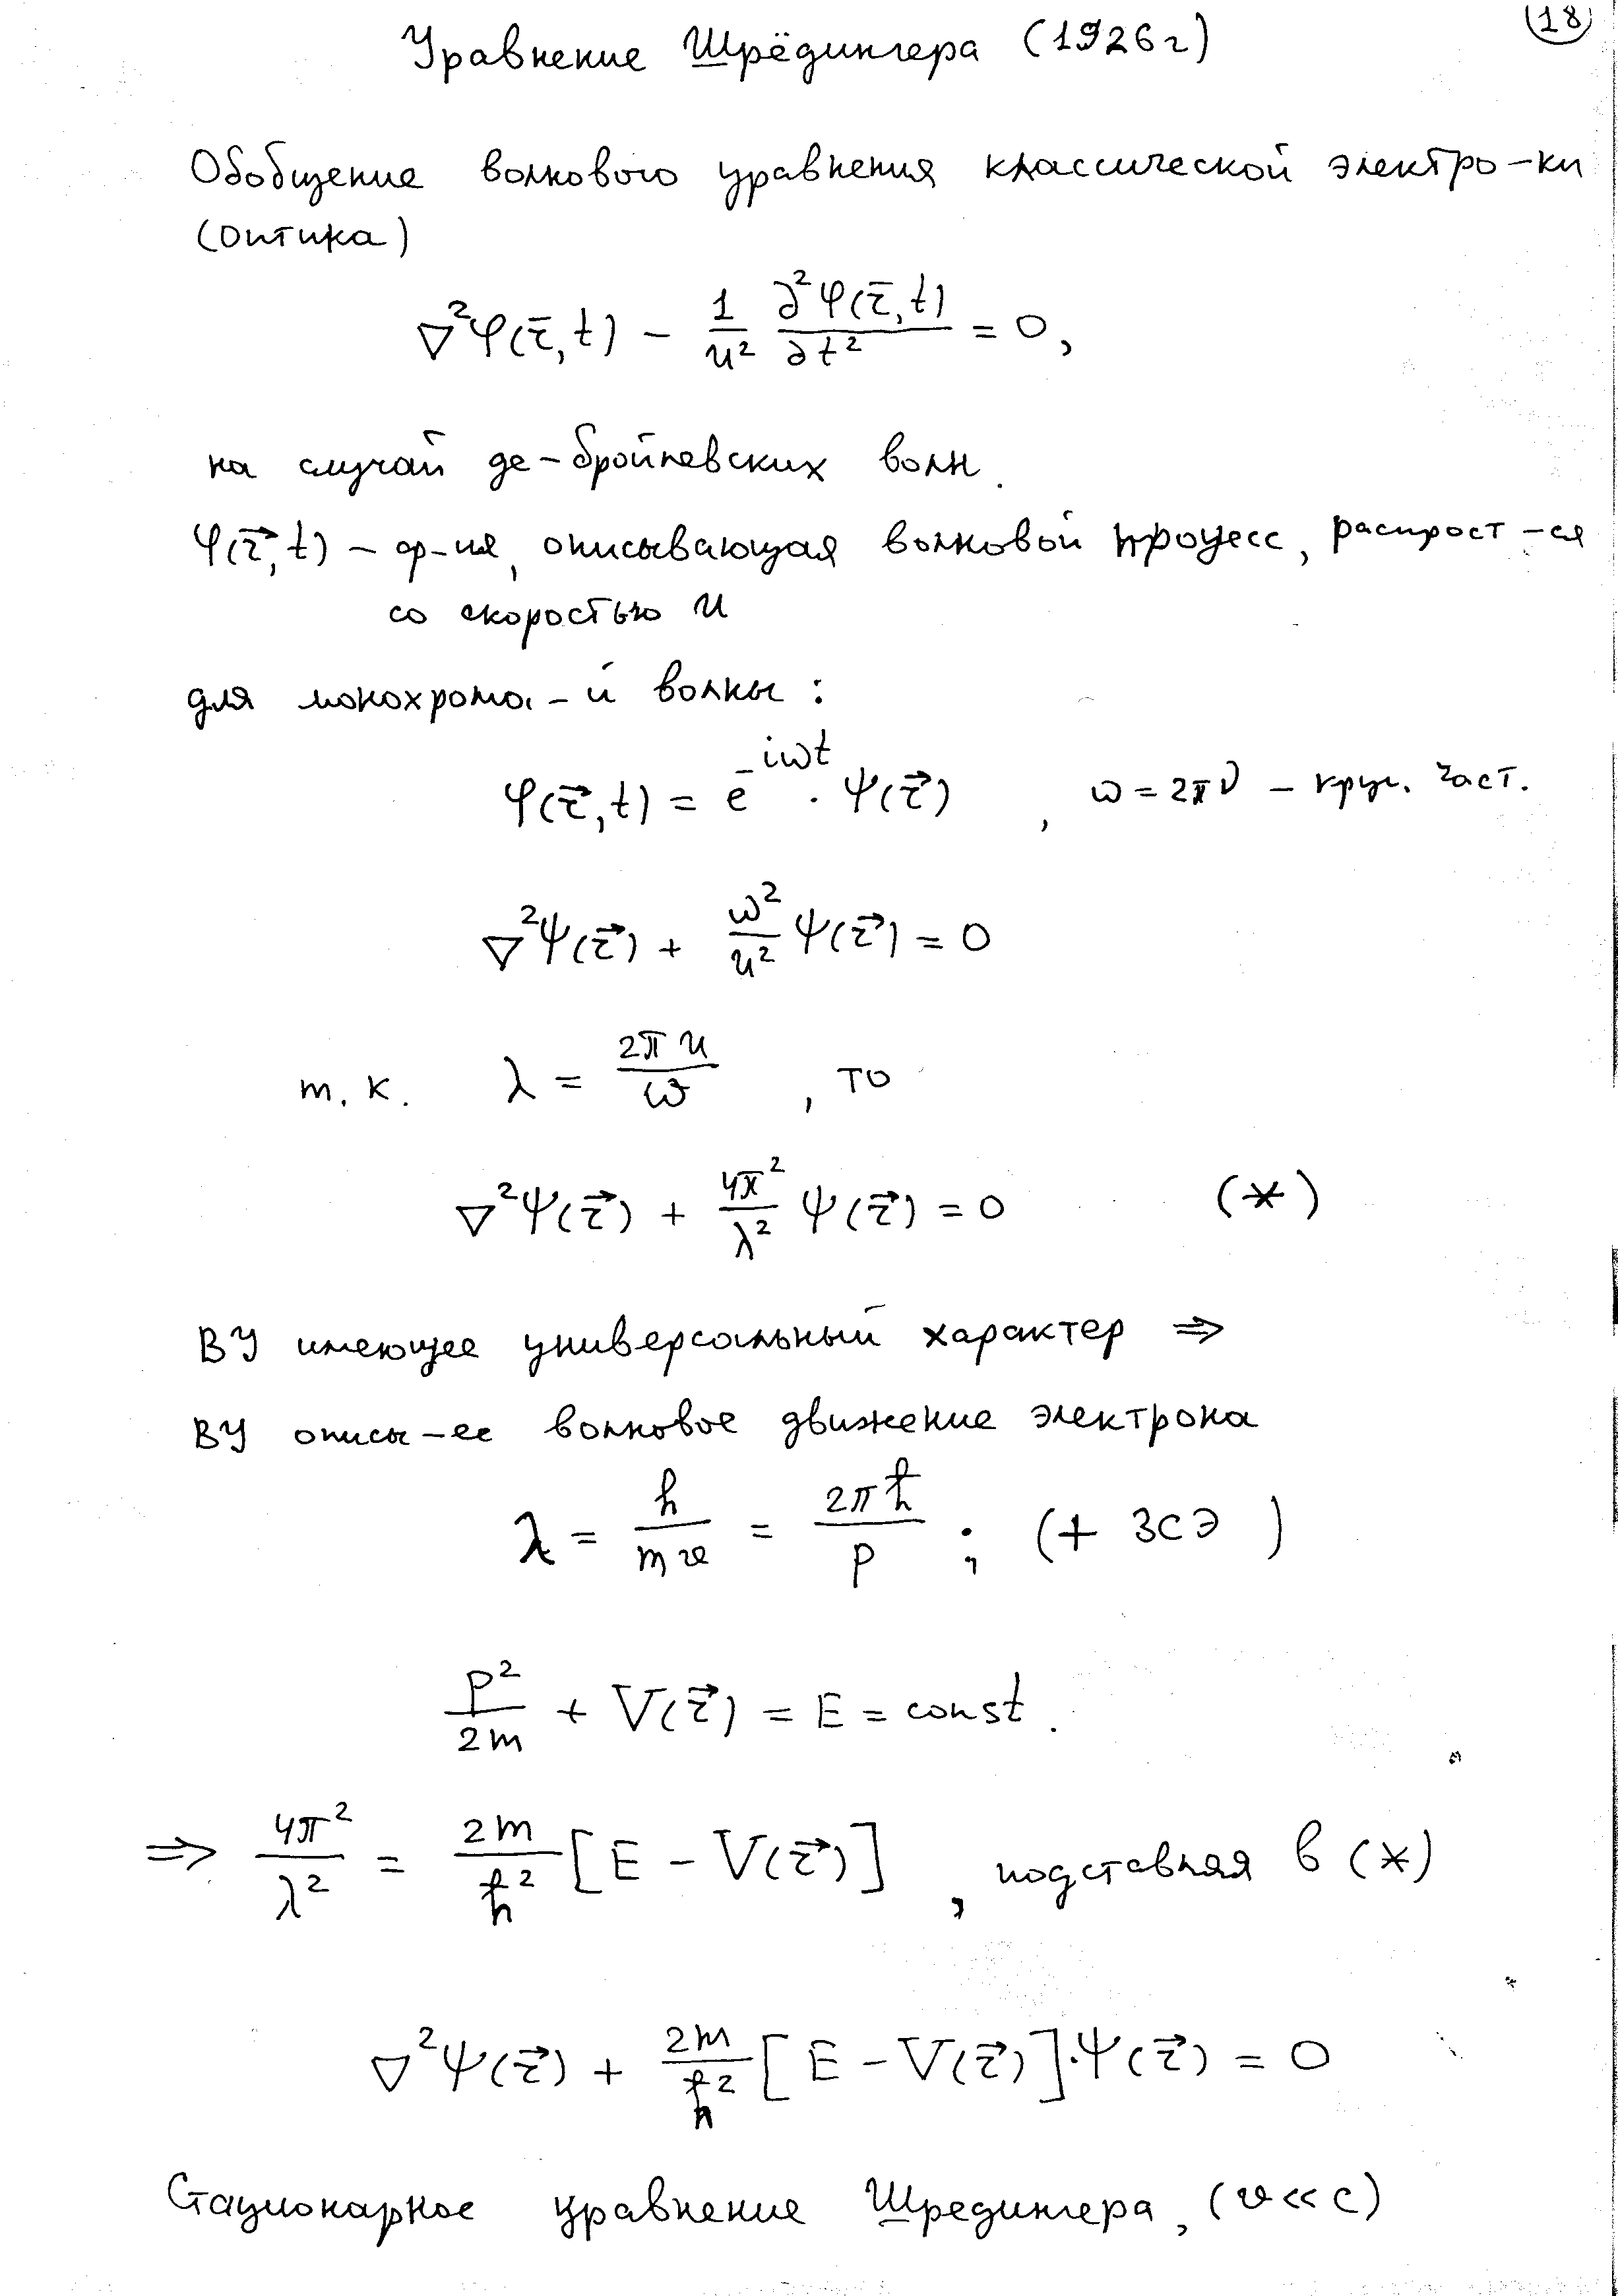 (18)
Уравнение Шрёдингера (1926г)
Обобщение волнового уравнения классической электро-ки
(оптика)
∇²φ(r̄, t) − 1/u² ∂²φ(r̄, t)/∂t² = 0,
на случай де-бройлевских волн.
φ(r⃗, t) – ф-ия, описывающая волновой процесс, распрост-ся
со скоростью u
для монохрома-й волны:
φ(r⃗, t) = e^(−iωt) · ψ(r⃗) , ω = 2πν – круг. част.
∇²ψ(r⃗) + ω²/u² ψ(r⃗) = 0
т. к. λ = 2πu/ω , то
∇²ψ(r⃗) + 4π²/λ² ψ(r⃗) = 0 (*)
ВУ имеющее универсальный характер ⇒
ВУ описы-ее волновое движение электрона
λ = h/mv = 2πħ/p ; (+ ЗСЭ )
p²/2m + V(r⃗) = E = const.
⇒ 4π²/λ² = 2m/ħ² [E − V(r⃗)] , подставляя в (*)
∇²ψ(r⃗) + 2m/ħ² [E − V(r⃗)]·ψ(r⃗) = 0
Стационарное уравнение Шредингера, (v << c)